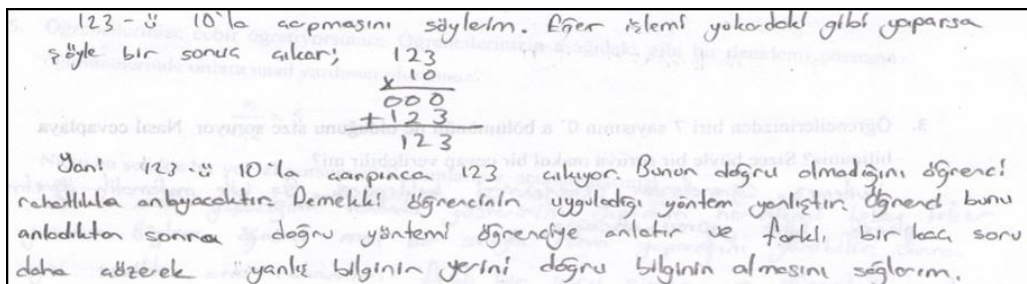 123-ü 10'la çarpmasını söylerim. Eğer işlemi yukardaki gibi yaparsa
şöyle bir sonuç çıkar;
123
x 10
000
+123
123
3. Öğrencilerinizden biri 7 sayısının 0' a bölümünün ne olduğunu size soruyor. Nasıl cevaplaya
Yani 123-ü 10'la çarpınca 123 çıkıyor. Bunun doğru olmadığını öğrenci
rahatlıkla anlayacaktır. Demekki öğrencinin uyguladığı yöntem yanlıştır. Öğrenci bunu
anladıktan sonra doğru yöntemi öğrenciye anlatır ve farklı bir kaç soru
daha çözerek yanlış bilginin yerini doğru bilginin almasını sağlarım.